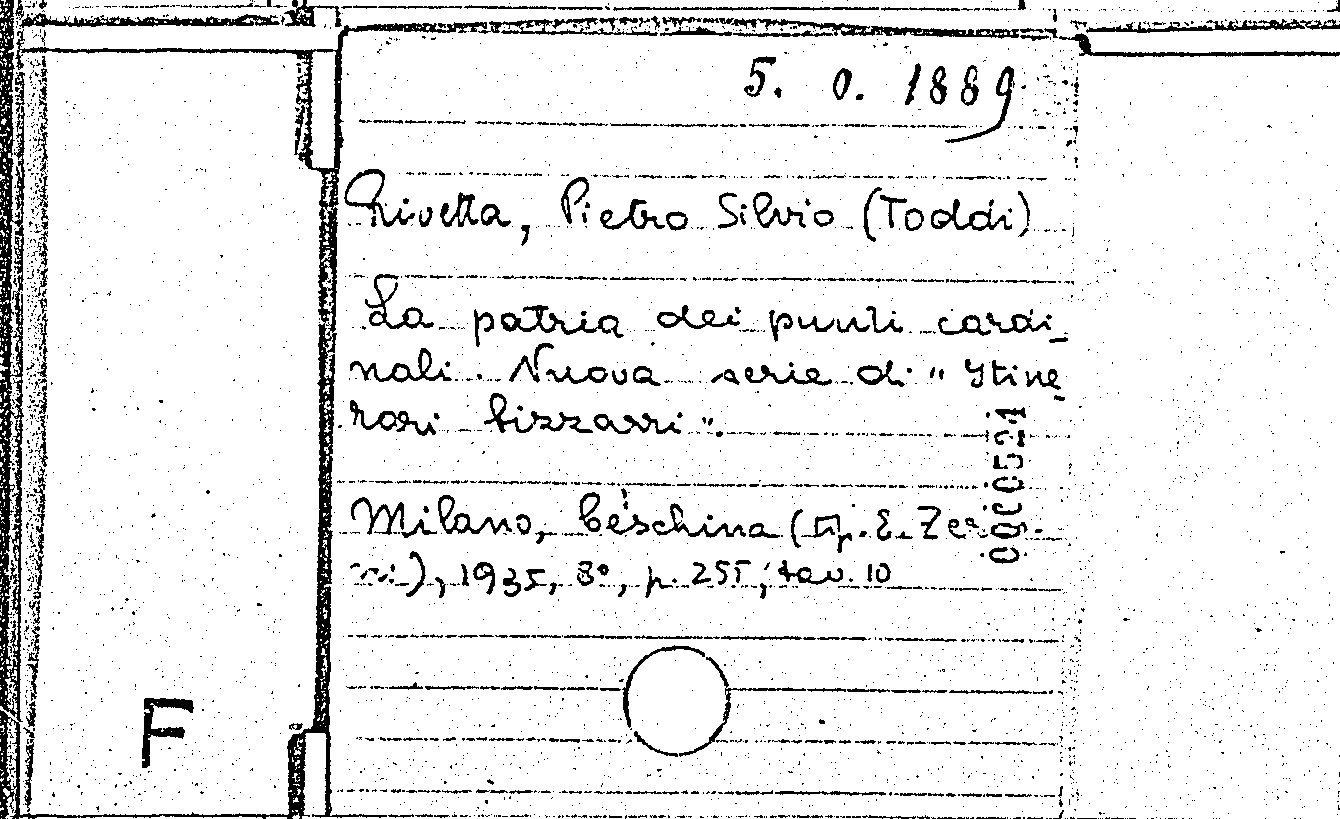 5. O. 1889
Rivetta, Pietro Silvio (Toddi)
La patria dei punti cardi_
nali. Nuova serie di " Itine_
rari bizzarri".
Milano, Ceschina (tip. E. Zer
ni), 1935, 8°, p. 255, tav. 10
0000524
F